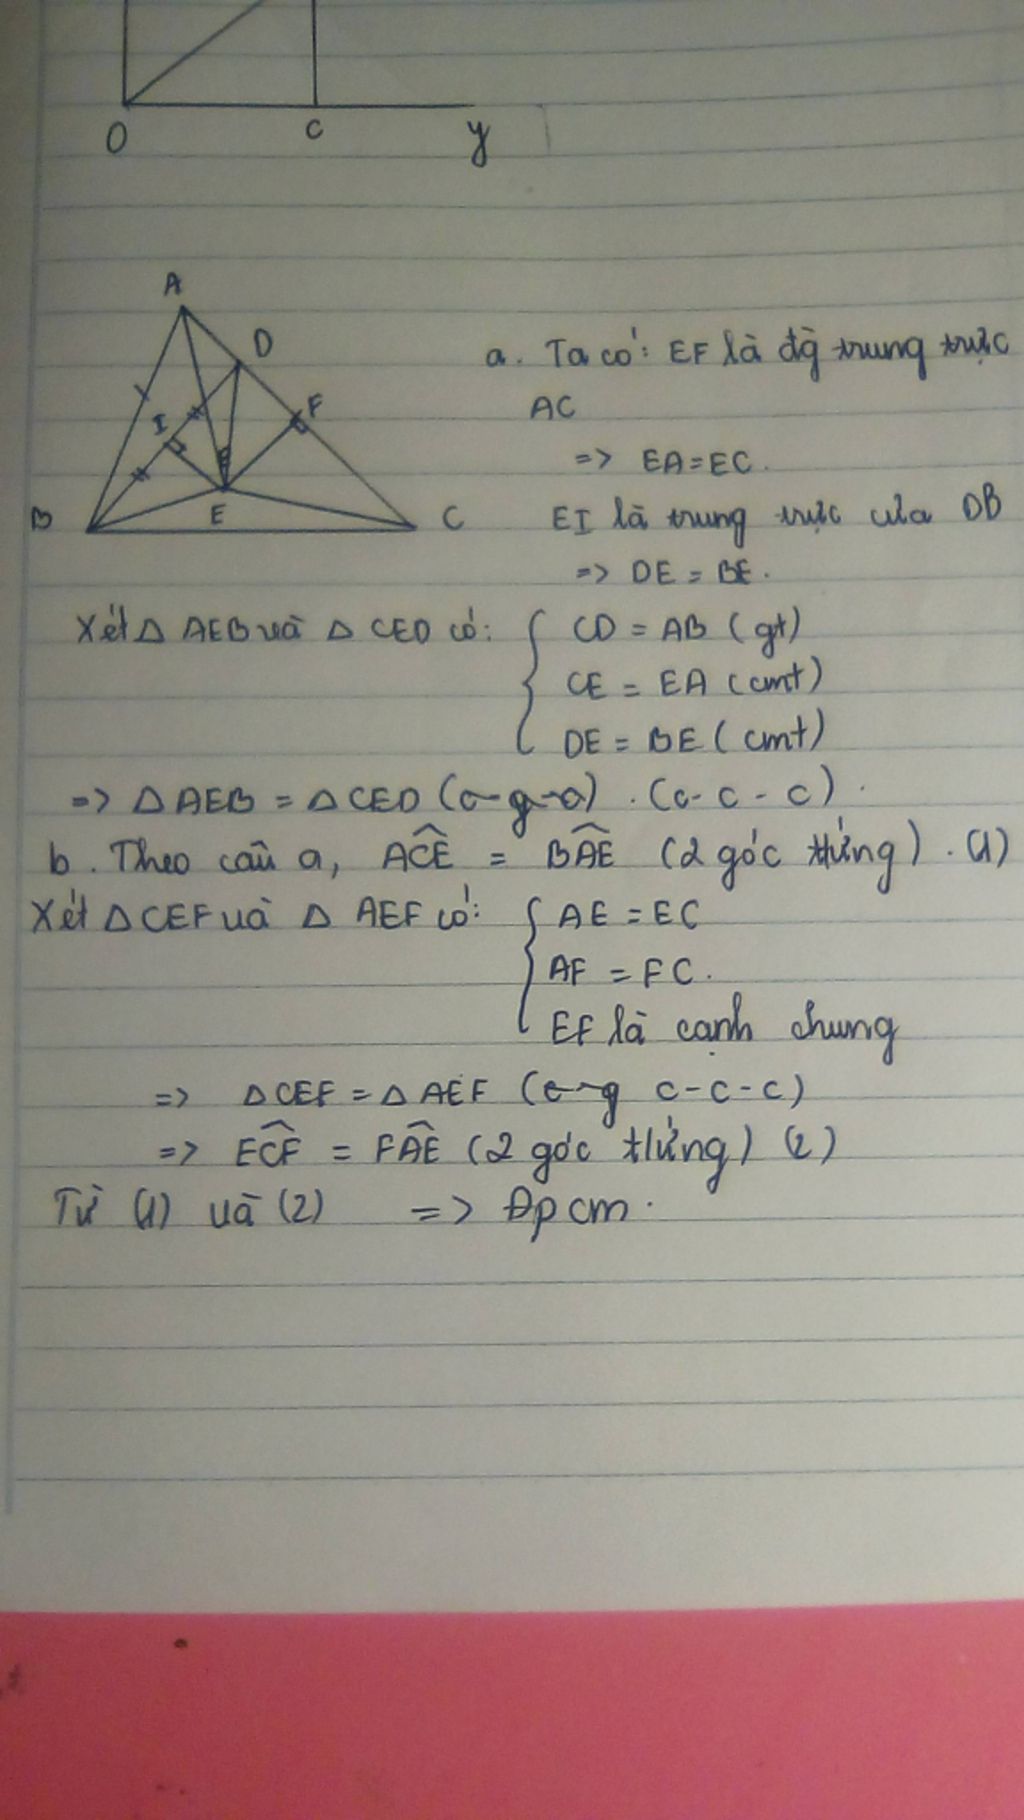 O
C
y
A
D
F
I
B
E
C
a. Ta có: EF là đg trung trực
AC
=> EA = EC.
EI là trung trực của DB
=> DE = BE.
Xét △ AEB và △ CED có: { CD = AB (gt)
CE = EA (cmt)
DE = BE (cmt)
=> △AEB = △CED (c-g-c). (c-c-c).
b. Theo câu a, \widehat{ACE} = \widehat{BAE} (2 góc tứng). (1)
Xét △CEF và △ AEF có: { AE = EC
AF = FC.
EF là cạnh chung
=> △CEF = △AEF (c-g c-c-c)
=> \widehat{ECF} = \widehat{FAE} (2 góc tứng) (2)
Từ (1) và (2) => Đpcm.